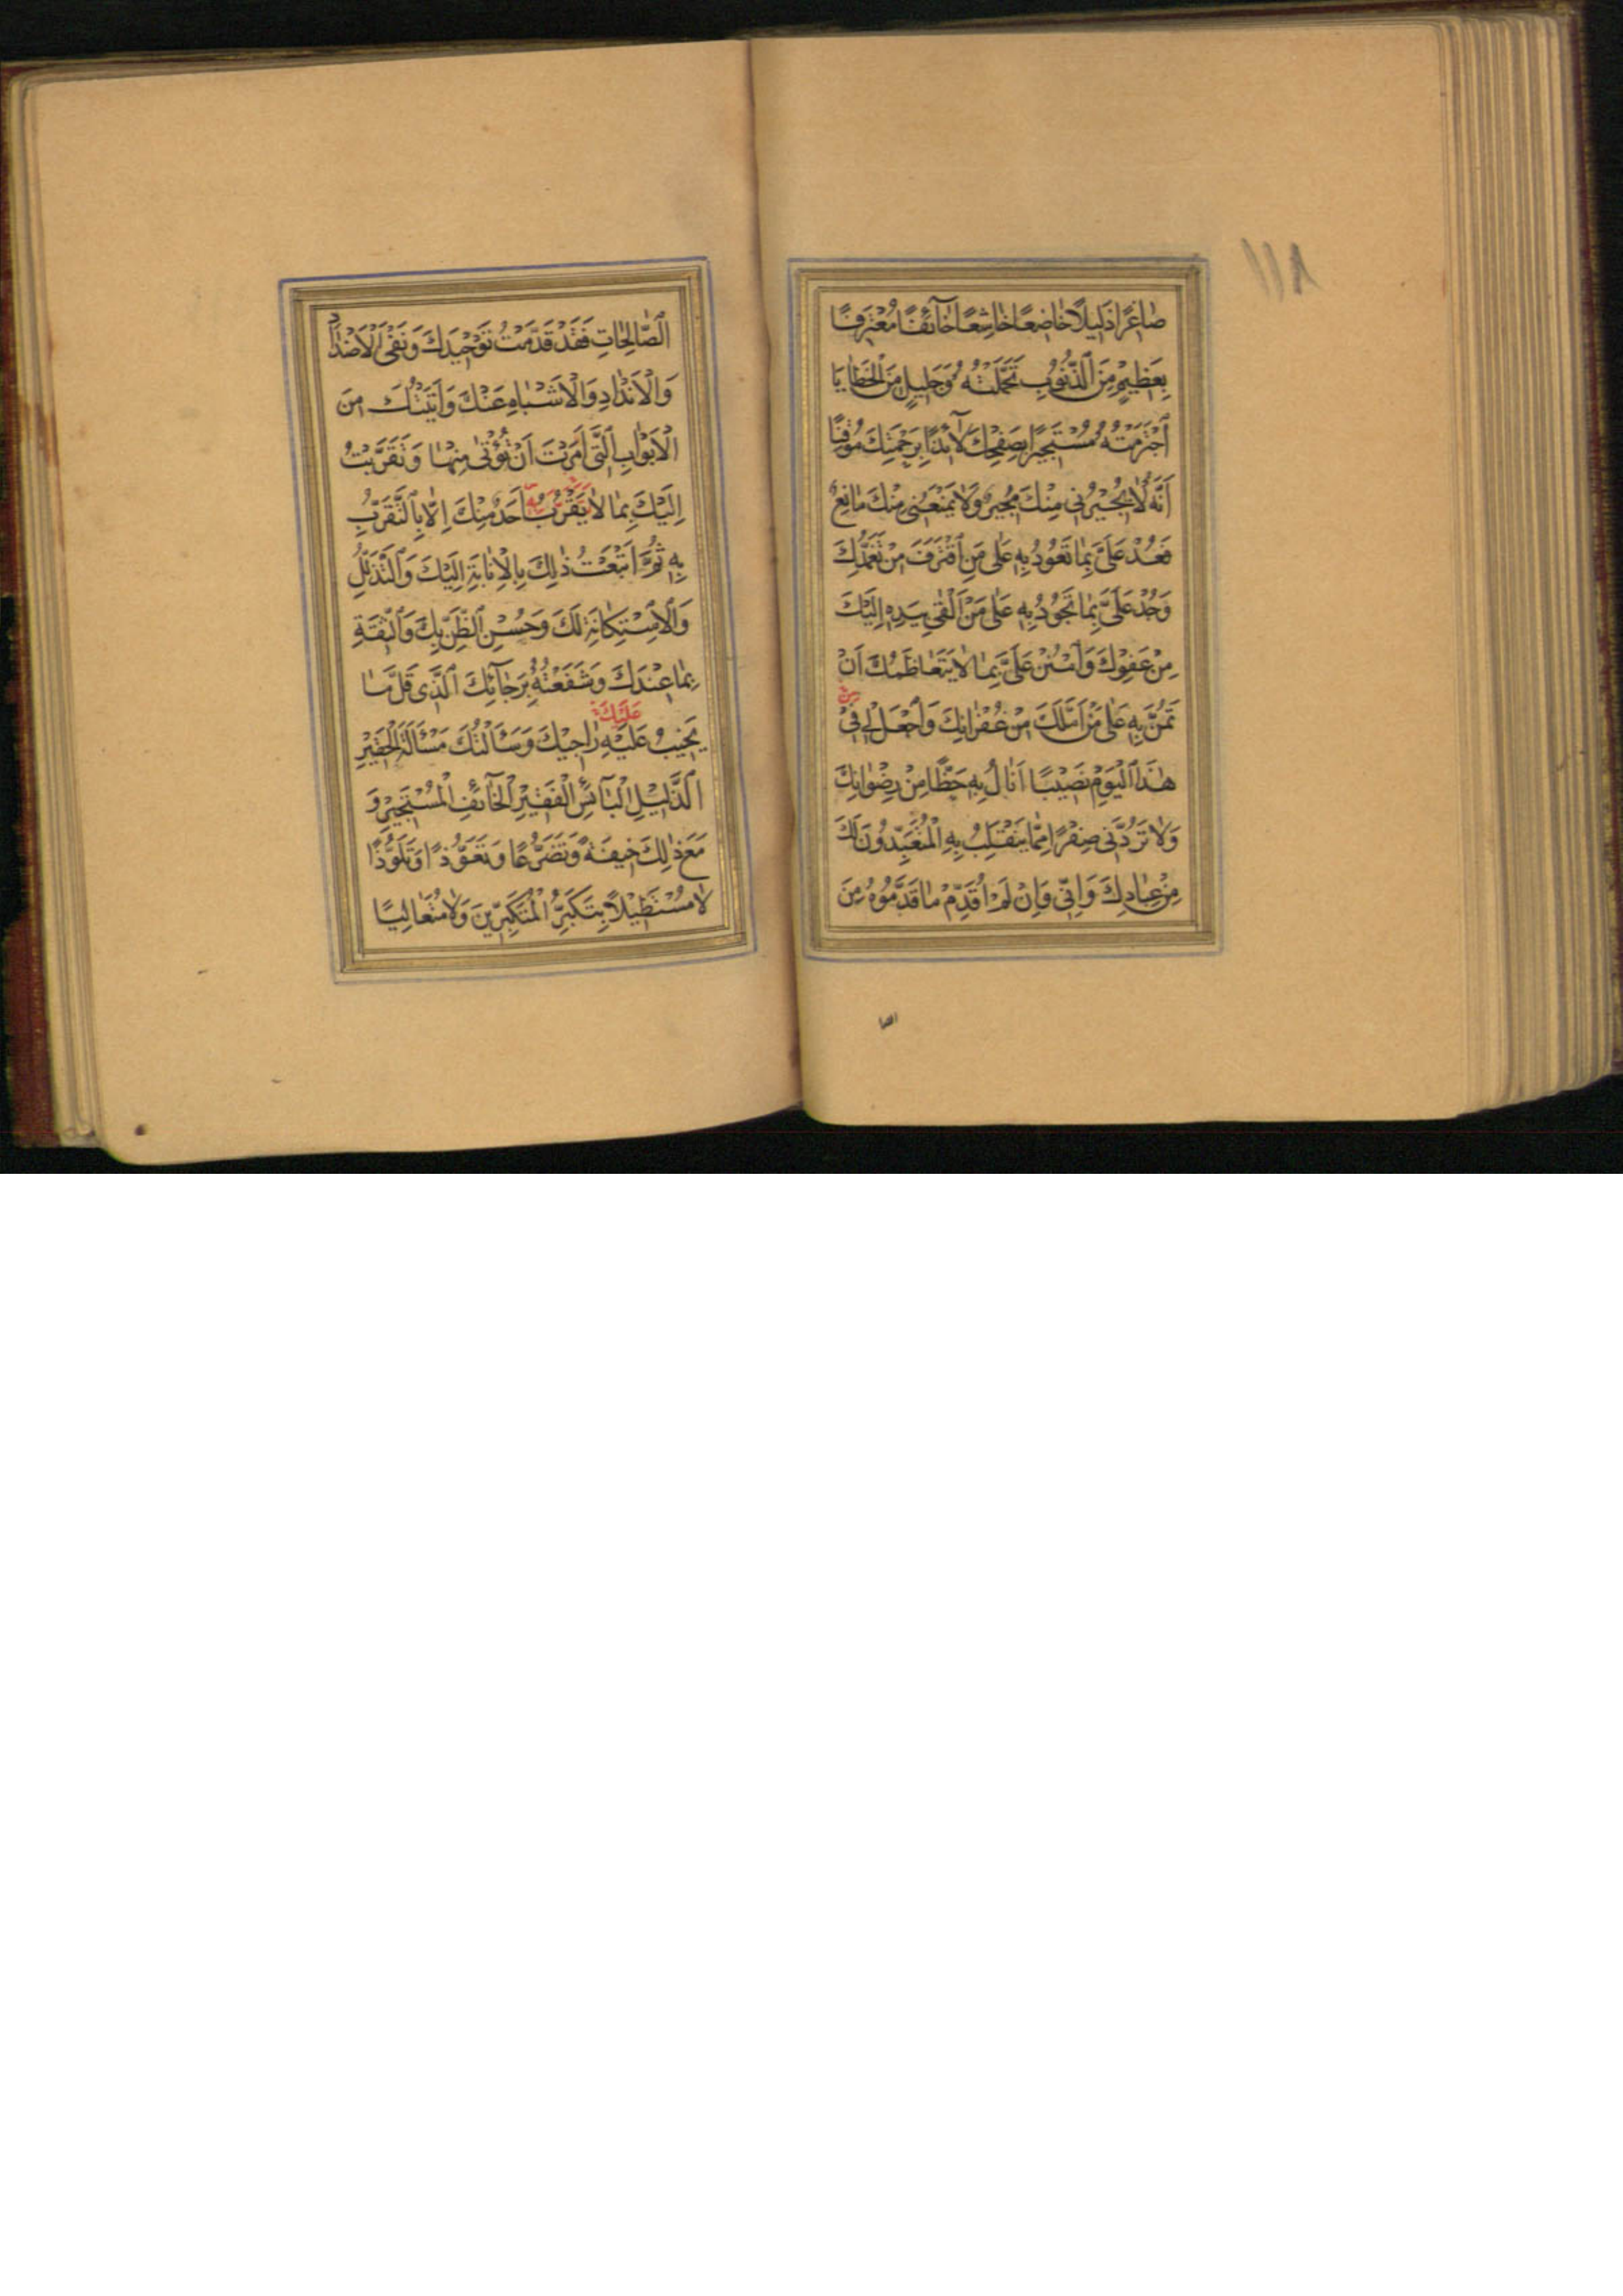 ١١٨
صٰاغِرًا ذَلِيلًا خٰاضِعًا خٰاشِعًا خٰآئِفًا مُعْتَرِفًا
بِعَظِيمٍ مِنَ الذُّنُوبِ تَحَمَّلْتُهُ وَجَلِيلٍ مِنَ الْخَطٰايٰا
اجْتَرَمْتُهُ مُسْتَجِيرًا بِصَفْحِكَ لٰآئِذًا بِرَحْمَتِكَ مُوقِنًا
أَنَّهُ لٰا يُجِيرُنِي مِنْكَ مُجِيرٌ وَلٰا يَمْنَعُنِي مِنْكَ مٰانِعٌ
فَعُدْ عَلَيَّ بِمٰا تَعُودُ بِهِ عَلٰى مَنِ اقْتَرَفَ مِنْ تَغَمُّدِكَ
وَجُدْ عَلَيَّ بِمٰا تَجُودُ بِهِ عَلٰى مَنْ أَلْقٰى بِيَدِهِ إِلَيْكَ
مِنْ عَفْوِكَ وَامْنُنْ عَلَيَّ بِمٰا لٰا يَتَعٰاظَمُكَ أَنْ
تَمُنَّ بِهِ عَلٰى مَنْ أَمَّلَكَ مِنْ غُفْرٰانِكَ وَاجْعَلْ لِي فِي
هٰذَا الْيَوْمِ نَصِيبًا أَنٰالُ بِهِ حَظًّا مِنْ رِضْوٰانِكَ
وَلٰا تَرُدَّنِي صِفْرًا مِمّٰا يَنْقَلِبُ بِهِ الْمُتَعَبِّدُونَ لَكَ
مِنْ عِبٰادِكَ وَإِنِّي وَإِنْ لَمْ أُقَدِّمْ مٰا قَدَّمُوهُ مِنَ
الصا
الصّٰالِحٰاتِ فَقَدْ قَدَّمْتُ تَوْحِيدَكَ وَنَفْيَ الْأَضْدٰادِ
وَالْأَنْدٰادِ وَالْأَشْبٰاهِ عَنْكَ وَأَتَيْتُكَ مِنَ
الْأَبْوٰابِ الَّتِي أَمَرْتَ أَنْ تُؤْتٰى مِنْهٰا وَتَقَرَّبْتُ
إِلَيْكَ بِمٰا لٰا يَقْرُبُ أَحَدٌ مِنْكَ إِلّٰا بِالتَّقَرُّبِ
بِهِ ثُمَّ أَتْبَعْتُ ذٰلِكَ بِالْإِنٰابَةِ إِلَيْكَ وَالتَّذَلُّلِ
وَالْاِسْتِكٰانَةِ لَكَ وَحُسْنِ الظَّنِّ بِكَ وَالثِّقَةِ
بِمٰا عِنْدَكَ وَشَفَعْتُهُ بِرَجٰآئِكَ الَّذِي قَلَّ مٰا
عَلَيْكَ
يَخِيبُ عَلَيْهِ رٰاجِيكَ وَسَأَلْتُكَ مَسْأَلَةَ الْحَقِيرِ
الذَّلِيلِ الْبٰآئِسِ الْفَقِيرِ الْخٰآئِفِ الْمُسْتَجِيرِ وَ
مَعَ ذٰلِكَ خِيفَةً وَتَضَرُّعًا وَتَعَوُّذًا وَتَلَوُّذًا
لٰا مُسْتَطِيلًا بِتَكَبُّرِ الْمُتَكَبِّرِينَ وَلٰا مُتَعٰالِيًا